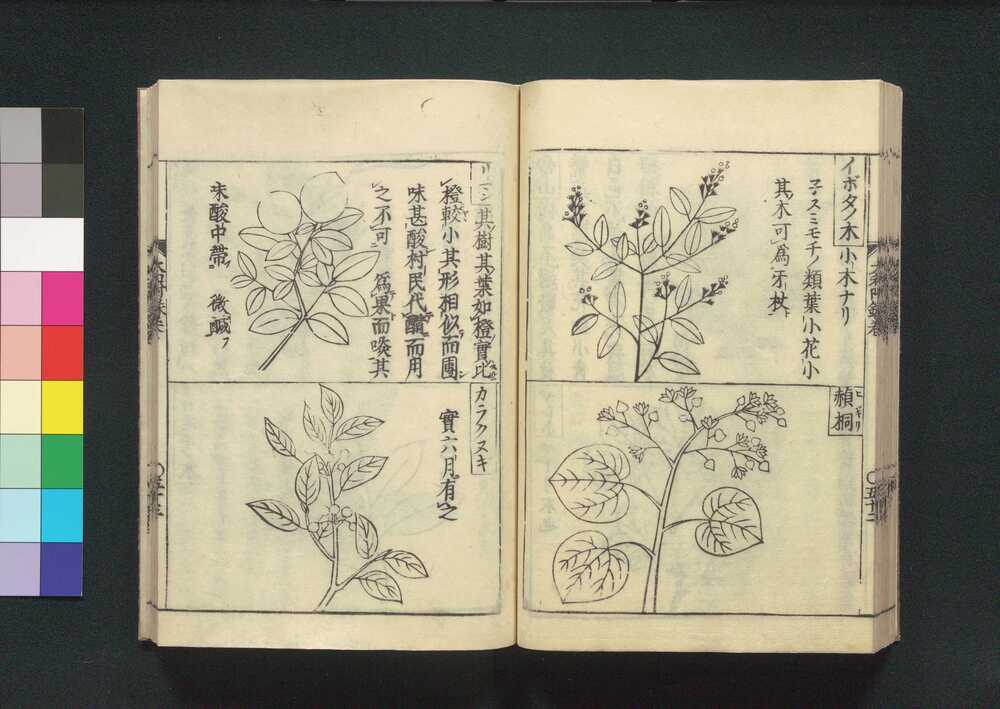 イボタノ木 小木ナリ
子スミモチノ類葉小花小
其木可爲牙杖
赬桐
ヒギリ
五十二
リマン 其樹其葉如橙實比
橙較小其形相似而團
味甚酸村民代醋而用
之不可爲菓而啖其
味酸中帶微鹹
カラクスキ
實六月有之